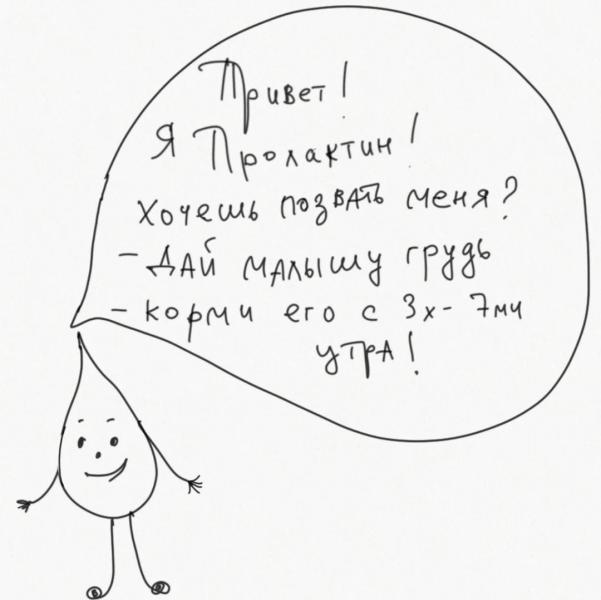 Привет!
Я Пролактин!
Хочешь позвать меня?
- Дай малышу грудь
- корми его с 3х- 7ми
утра!